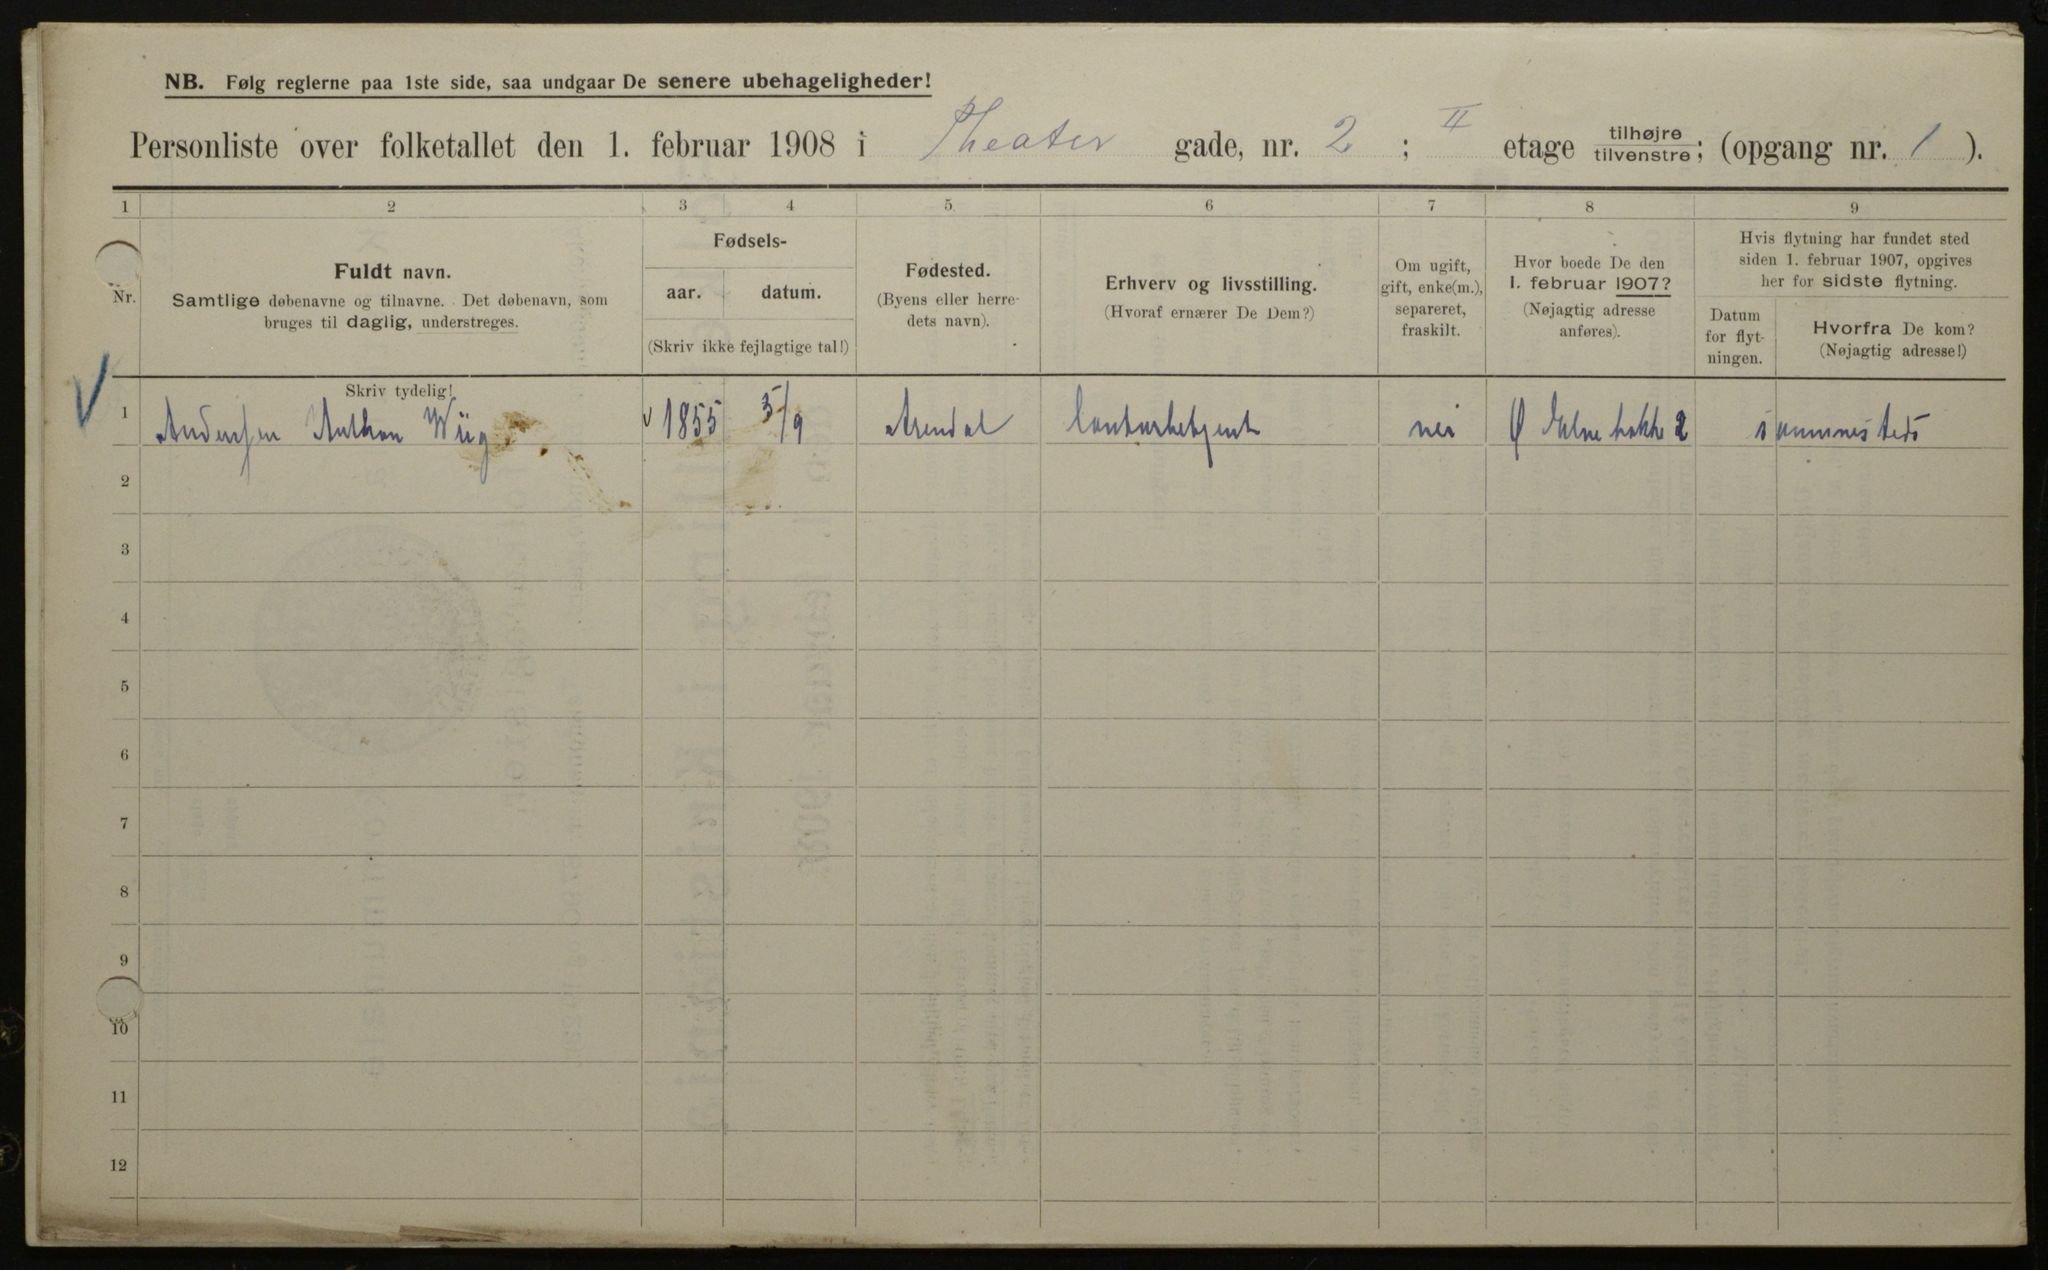 NB. Følg reglerne paa 1ste side, saa undgaar De senere ubehageligheder!
Personliste over folketallet den 1. februar 1908 i Theater gade, nr. 2 ; II etage tilhøjre/tilvenstre; (opgang nr. 1 ).
1 2 3 4 5. 6 7 8 9
Nr.
Fuldt navn.
Samtlige døbenavne og tilnavne. Det døbenavn, som
bruges til daglig, understreges.
Fødsels-
aar. datum.
(Skriv ikke fejlagtige tal!)
Fødested.
(Byens eller herre-
dets navn).
Erhverv og livsstilling.
(Hvoraf ernærer De Dem?)
Om ugift,
gift, enke(m.),
separeret,
fraskilt.
Hvor boede De den
1. februar 1907?
(Nøjagtig adresse
anføres).
Hvis flytning har fundet sted
siden 1. februar 1907, opgives
her for sidste flytning.
Datum
for flyt-
ningen.
Hvorfra De kom?
(Nøjagtig adresse!)
Skriv tydelig!
1 Andersen Anthon Wiig 1855 5/9 Arendal Contorbetjent nei Ø 2 sammesteds
2
3
4
5
6
7
8
9
10
11
12